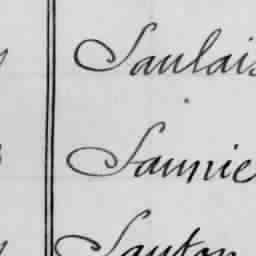 Saulais
Saunie
Sauton